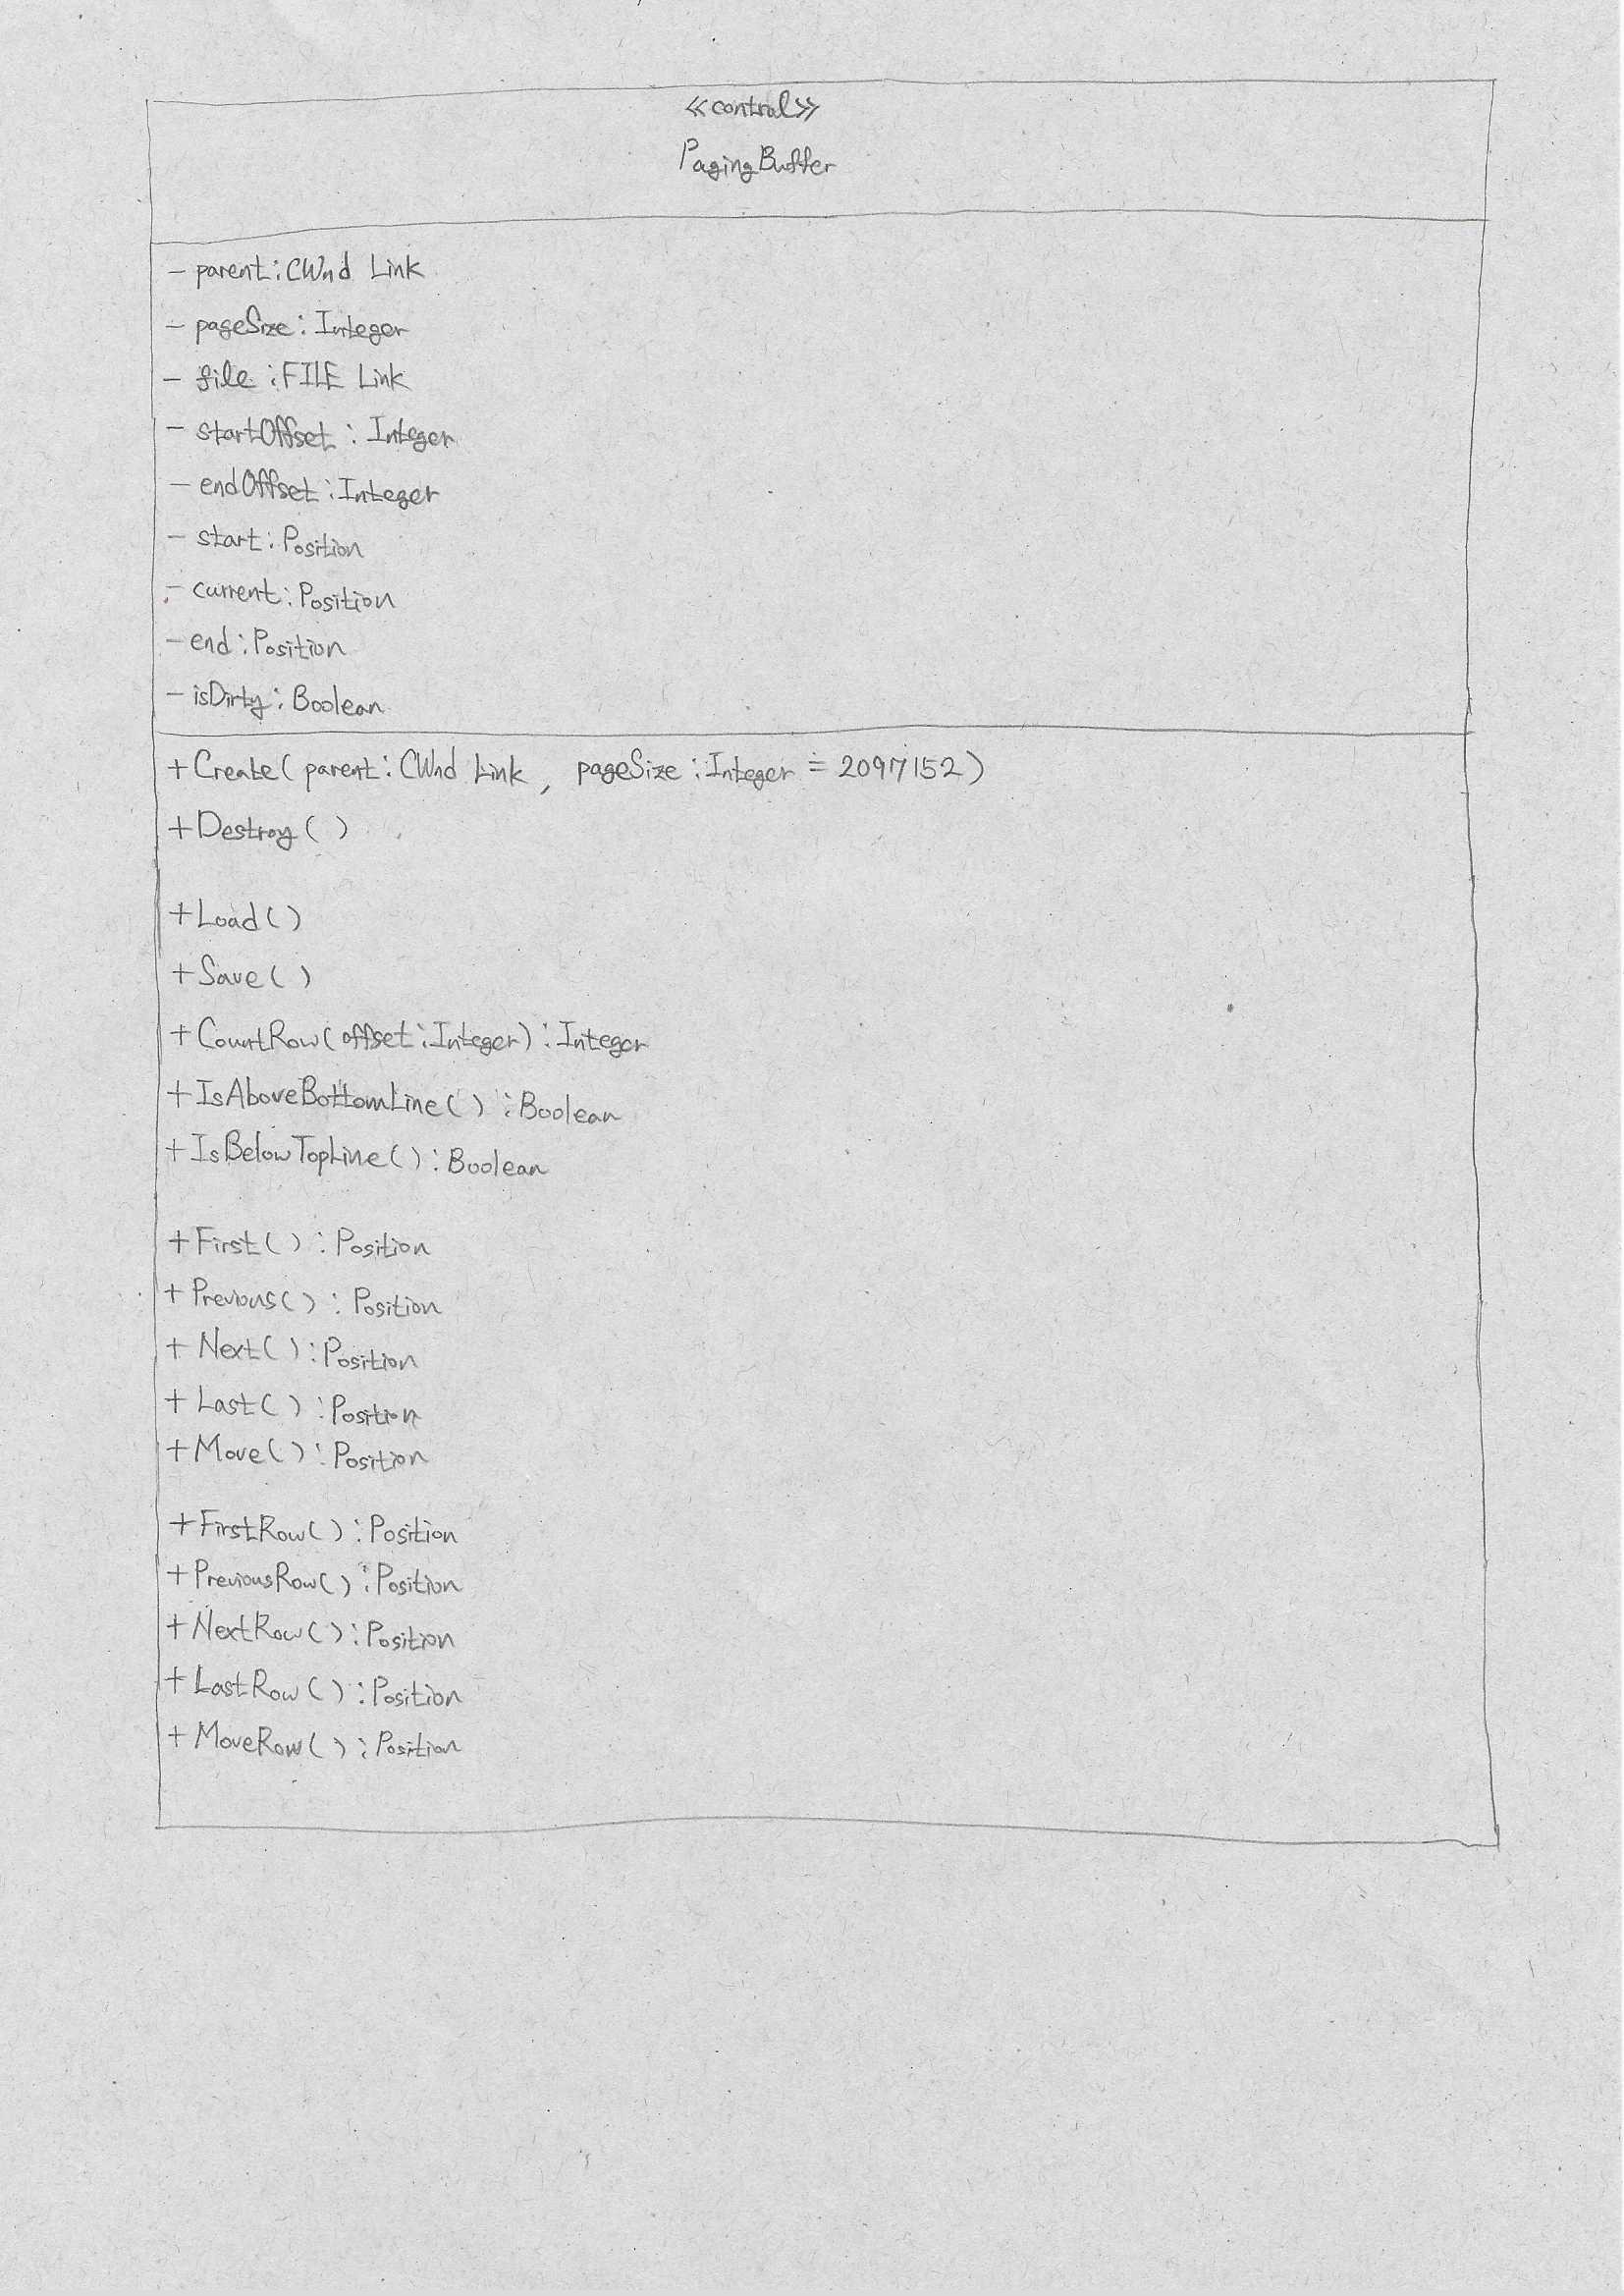 ≪control≫
PagingBuffer
- parent : CWnd Link
- pageSize : Integer
- file : FILE Link
- startOffset : Integer
- endOffset : Integer
- start : Position
- current : Position
- end : Position
- isDirty : Boolean
+ Create( parent : CWnd Link , pageSize : Integer = 2097152 )
+ Destroy( )
+ Load( )
+ Save( )
+ CountRow(offset : Integer) : Integer
+ IsAboveBottomLine( ) : Boolean
+ IsBelowTopLine( ) : Boolean
+ First( ) : Position
+ Previous( ) : Position
+ Next( ) : Position
+ Last( ) : Position
+ Move( ) : Position
+ FirstRow( ) : Position
+ PreviousRow( ) : Position
+ NextRow( ) : Position
+ LastRow( ) : Position
+ MoveRow( ) : Position